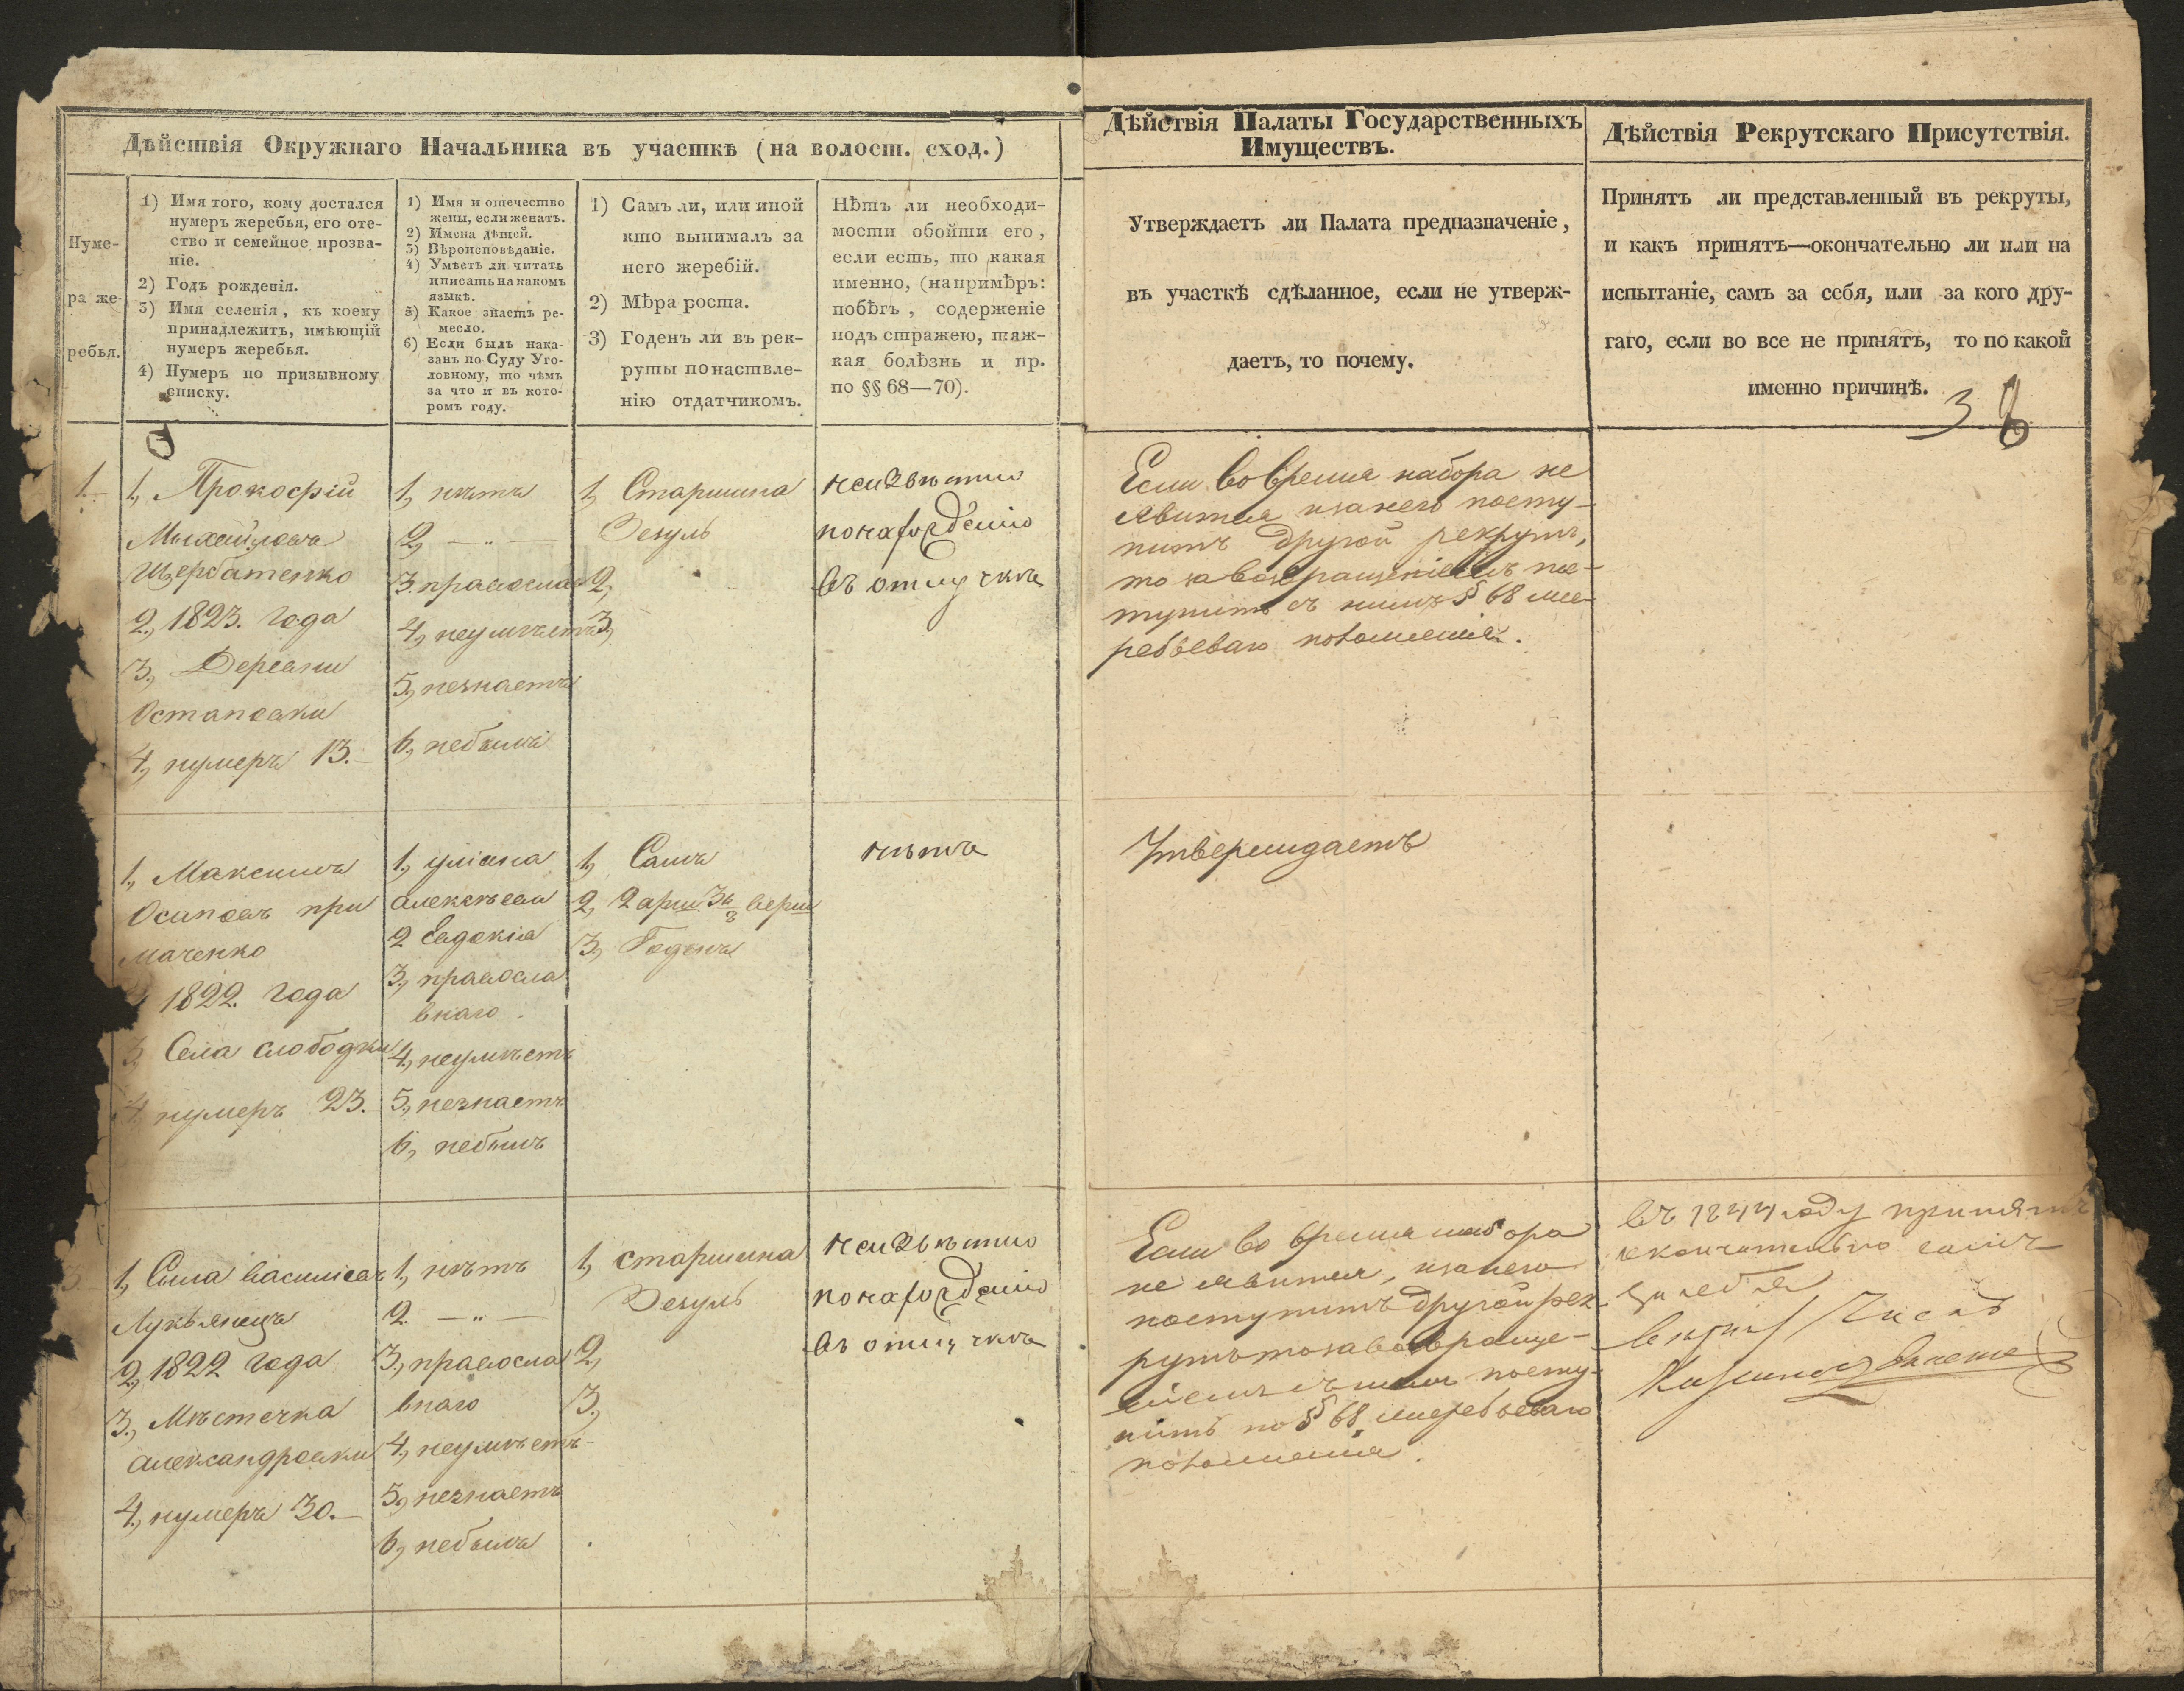 Дѣйствія Окружнаго Начальника въ участкѣ (на волост. сход.)
Нуме-
ра же-
ребья.
1) Имя того, кому достался
нумеръ жеребья, его оте-
ство и семейное прозва-
ніе.
2) Годъ рожденія.
3) Имя селенія, къ коему
принадлежитъ, имѣющій
нумеръ жеребья.
4) Нумеръ по призывному
списку.
1) Имя и отечество
жены, если женатъ.
2) Имена дѣтей.
3) Вѣроисповѣданіе.
4) Умѣетъ ли читать
и писать на какомъ
языкѣ.
5) Какое знаетъ ре-
месло.
6) Если былъ нака-
занъ по Суду Уго-
ловному, то чѣмъ
за что и въ кото-
ромъ году.
1) Самъ ли, или иной
кто вынималъ за
него жеребій.
2) Мѣра роста.
3) Годенъ ли въ рек-
руты по наствле-
нію отдатчикомъ.
Нѣтъ ли необходи-
мости обойти его,
если есть, то какая
именно, (напримѣръ:
побѣгъ, содержаніе
подъ стражею, тяж-
кая болѣзнь и пр.
по §§ 68—70).
Дѣйствія Палаты Государственныхъ
Имуществъ.
Утверждаетъ ли Палата предназначеніе,
въ участкѣ сдѣланное, если не утверж-
даетъ, то почему.
Дѣйствія Рекрутскаго Присутствія.
Принятъ ли представленный въ рекруты,
и какъ принятъ—окончательно ли или на
испытаніе, самъ за себя, или за кого дру-
гаго, если во все не принятъ, то по какой
именно причинѣ.
3
1.
1, Прокофій
Михайловъ
Щербатенко
2, 1823. года
3, Деревни
Остаповки
4, нумеръ 13.
1, нѣтъ
2, — „ —
3. правосла
4, неумѣетъ
5, незнаетъ
6, небылъ
1, Старшина
Зезуль
2,
3,
неизвѣстно
понахожденію
въ отлучкѣ
Если во время набора не
явится изанего посту-
питъ другой рекрутъ,
то за возвращеніемъ пос-
тупить съ нимъ § 68 же-
ребьеваго положенія.
1, Максимъ
Осиповъ при
маченко
1822. года
3, Села слободки
4, нумеръ 23.
1, уліана
алексѣева
2 Евдокіа
3, правосла
внаго
4, неумѣетъ
5, незнаетъ
6, небылъ
1, Самъ
2, 2 арш 3 верш
3, Годенъ
нѣтъ
Утверждаетъ
1, Сила василіевъ
Лукьянецъ
2, 1822 года
3, Мѣстечка
александровки
4, нумеръ 30.
1, нѣтъ
2. — „ —
3, правосла
внаго
4, неумѣетъ
5, незнаетъ
6, небылъ
1, старшина
Зезуль
2,
3,
неизвѣстно
понахожденію
въ отлучкѣ
Если во время набора
не явится, изанего
поступитъ другой рек
рутъ то за возвраще-
ніемъ съ нимъ посту-
пить по § 68 жеребьеваго
положенія.
въ 1844 году принятъ
окончательно самъ
за себя